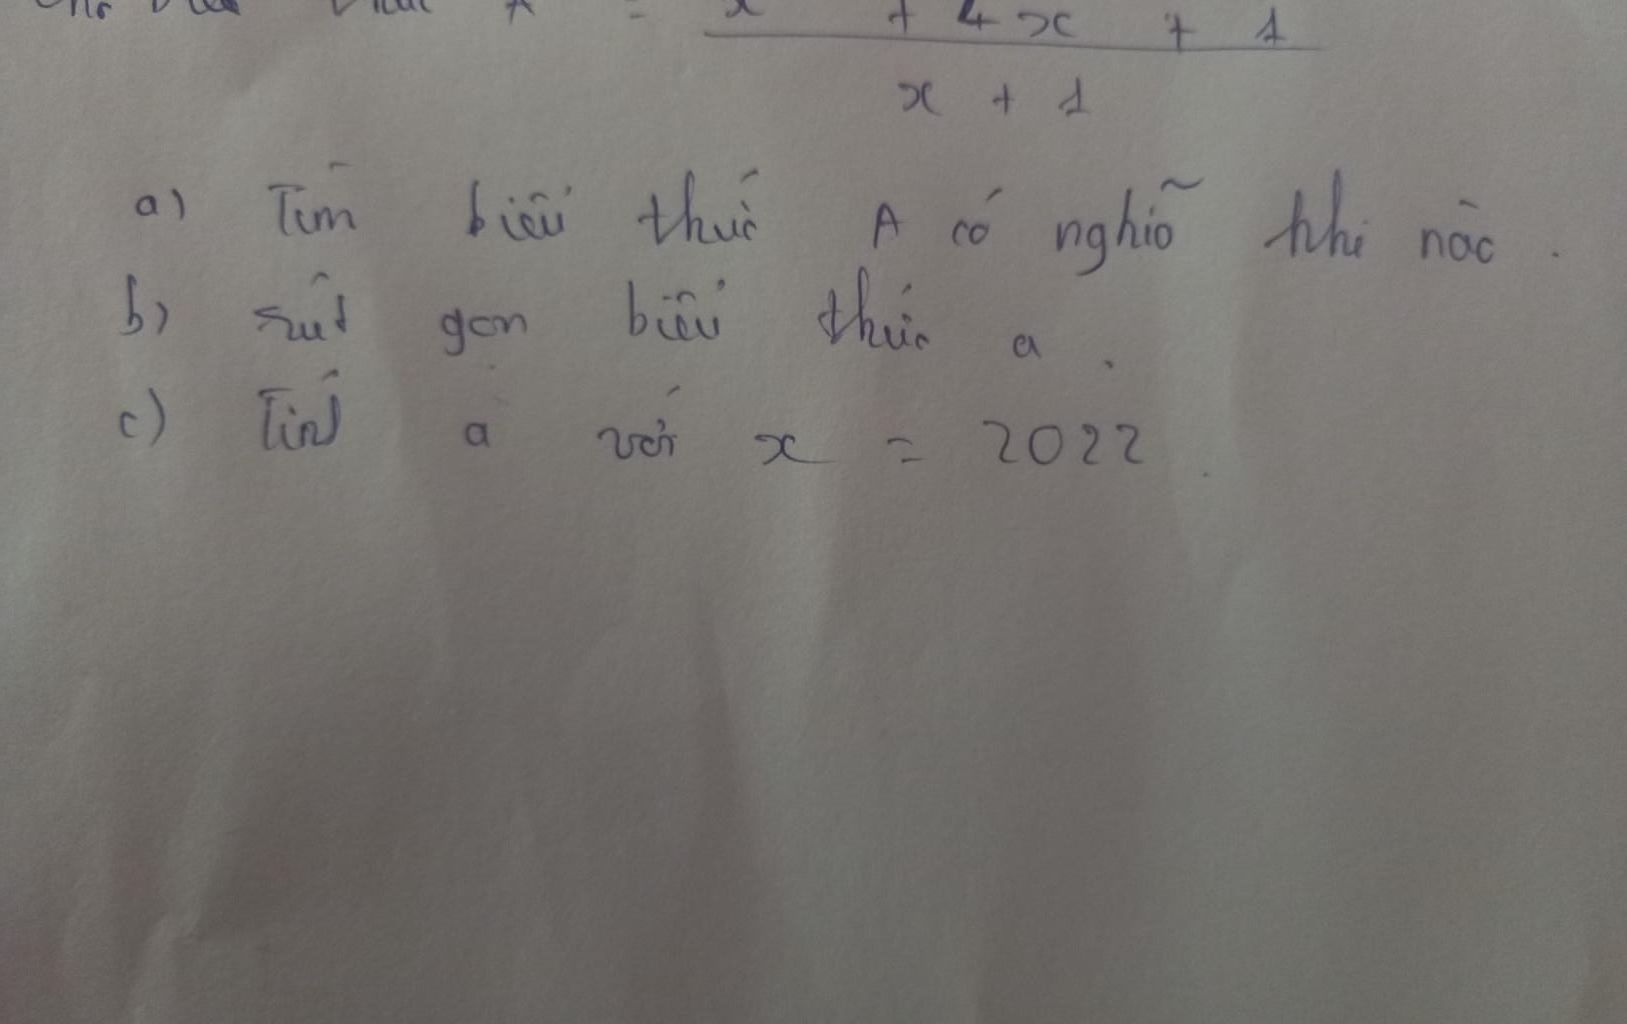 A = x + 4x + 1
x + 1
a) Tìm biểu thức A có nghiõ khi nào.
b) rút gọn biểu thức a.
c) Tính a với x = 2022.